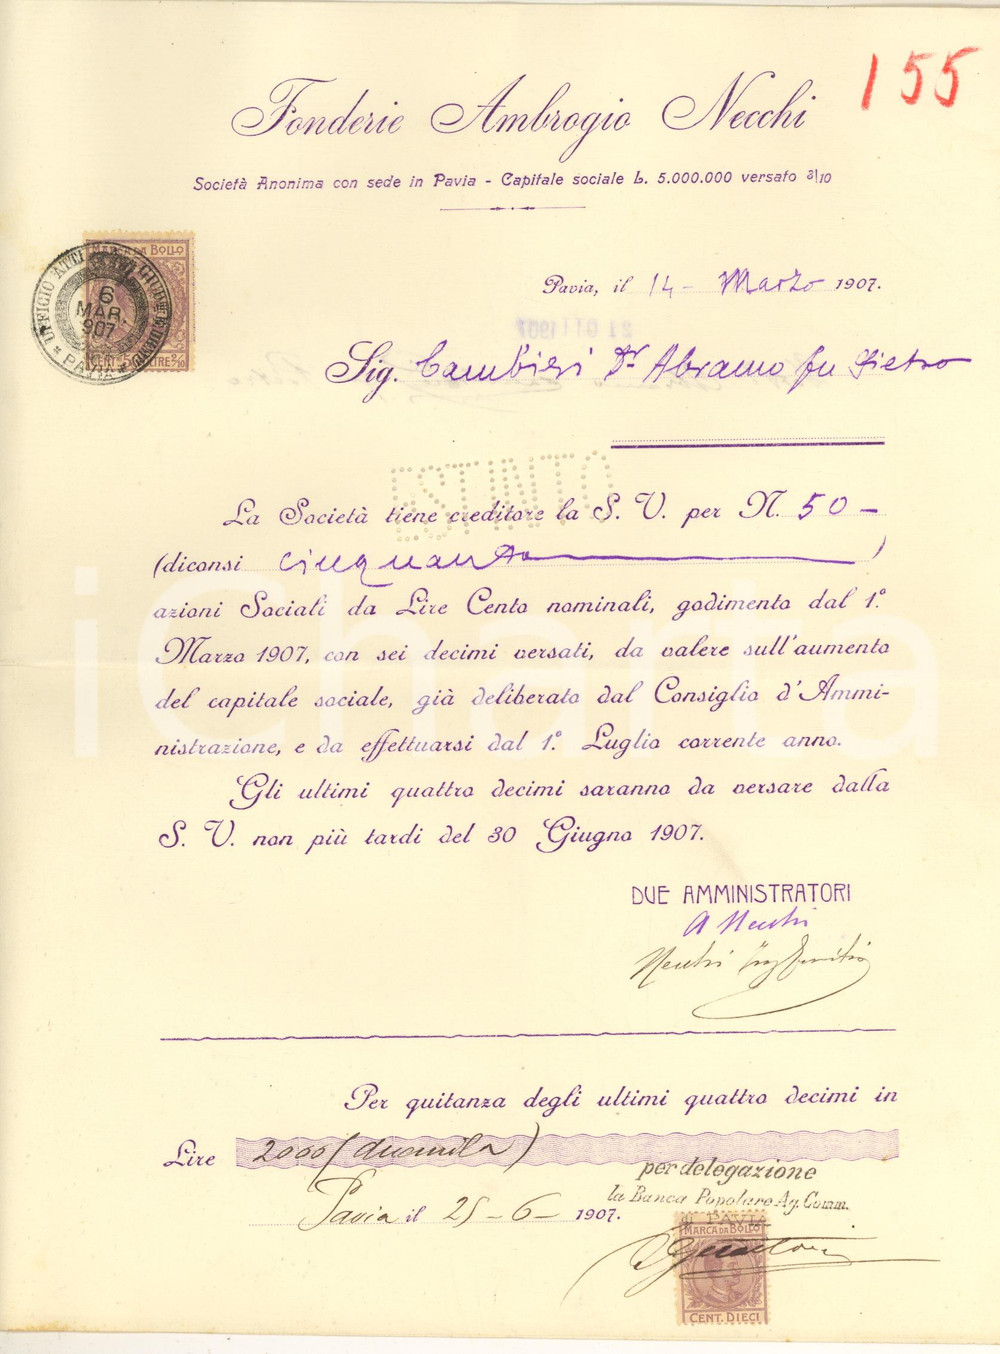 155
Fonderie Ambrogio Necchi
Società Anonima con sede in Pavia - Capitale sociale L. 5.000.000 versato 3/10
MARCA DA BOLLO
UFFICIO ATTI
6
MAR.
907
PAVIA
Pavia, il 14 - Marzo 1907.
21 OTT 1907
Sig. Cambieri Dr Abramo fu Pietro
ESTINTO
La Società tiene creditore la S. V. per N. 50 -
(diconsi cinquanta )
azioni Sociali da Lire Cento nominali, godimento dal 1.°
Marzo 1907, con sei decimi versati, da valere sull'aumento
del capitale sociale, già deliberato dal Consiglio d'Ammi-
nistrazione, e da effettuarsi dal 1.° Luglio corrente anno.
Gli ultimi quattro decimi saranno da versare dalla
S. V. non più tardi del 30 Giugno 1907.
DUE AMMINISTRATORI
A Necchi
Necchi Ing
Per quitanza degli ultimi quattro decimi in
Lire 2000 (duemila)
per delegazione
la Banca Popolare Ag. Comm.
Pavia il 25 - 6 - 1907.
PAVIA
MARCA DA BOLLO
CENT. DIECI
iCharta